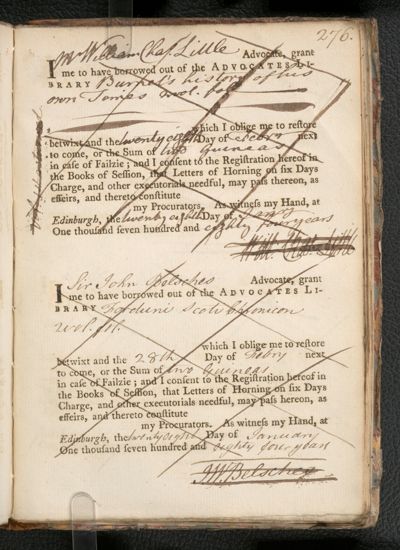 276.
I Mr William Chas. Little Advocate, grant
me to have borrowed out of the ADVOCATES LI-
BRARY Burnet's history of his
own Times 2 vol. fol.
betwixt and the twenty eight which I oblige me to restore
Day of Febry next
to come, or the Sum of two Guineas
in case of Failzie; and I consent to the Registration hereof in
the Books of Session, that Letters of Horning on six Days
Charge, and other executorials needful, may pass thereon, as
effeirs, and thereto constitute
my Procurators. As witness my Hand, at
Edinburgh, the twenty eight Day of Jany
One thousand seven hundred and eighty four years
Will: Chas: Little
I Sir John Belsches Advocate, grant
me to have borrowed out of the ADVOCATES LI-
BRARY Forduni Scotichronicon
vol. fol.
which I oblige me to restore
betwixt and the 28th Day of Febry next
to come, or the Sum of two Guineas
in case of Failzie; and I consent to the Registration hereof in
the Books of Session, that Letters of Horning on six Days
Charge, and other executorials needful, may pass hereon, as
effeirs, and thereto constitute
my Procurators. As witness my Hand, at
Edinburgh, the twenty eight Day of January
One thousand seven hundred and eighty four years
Belsches